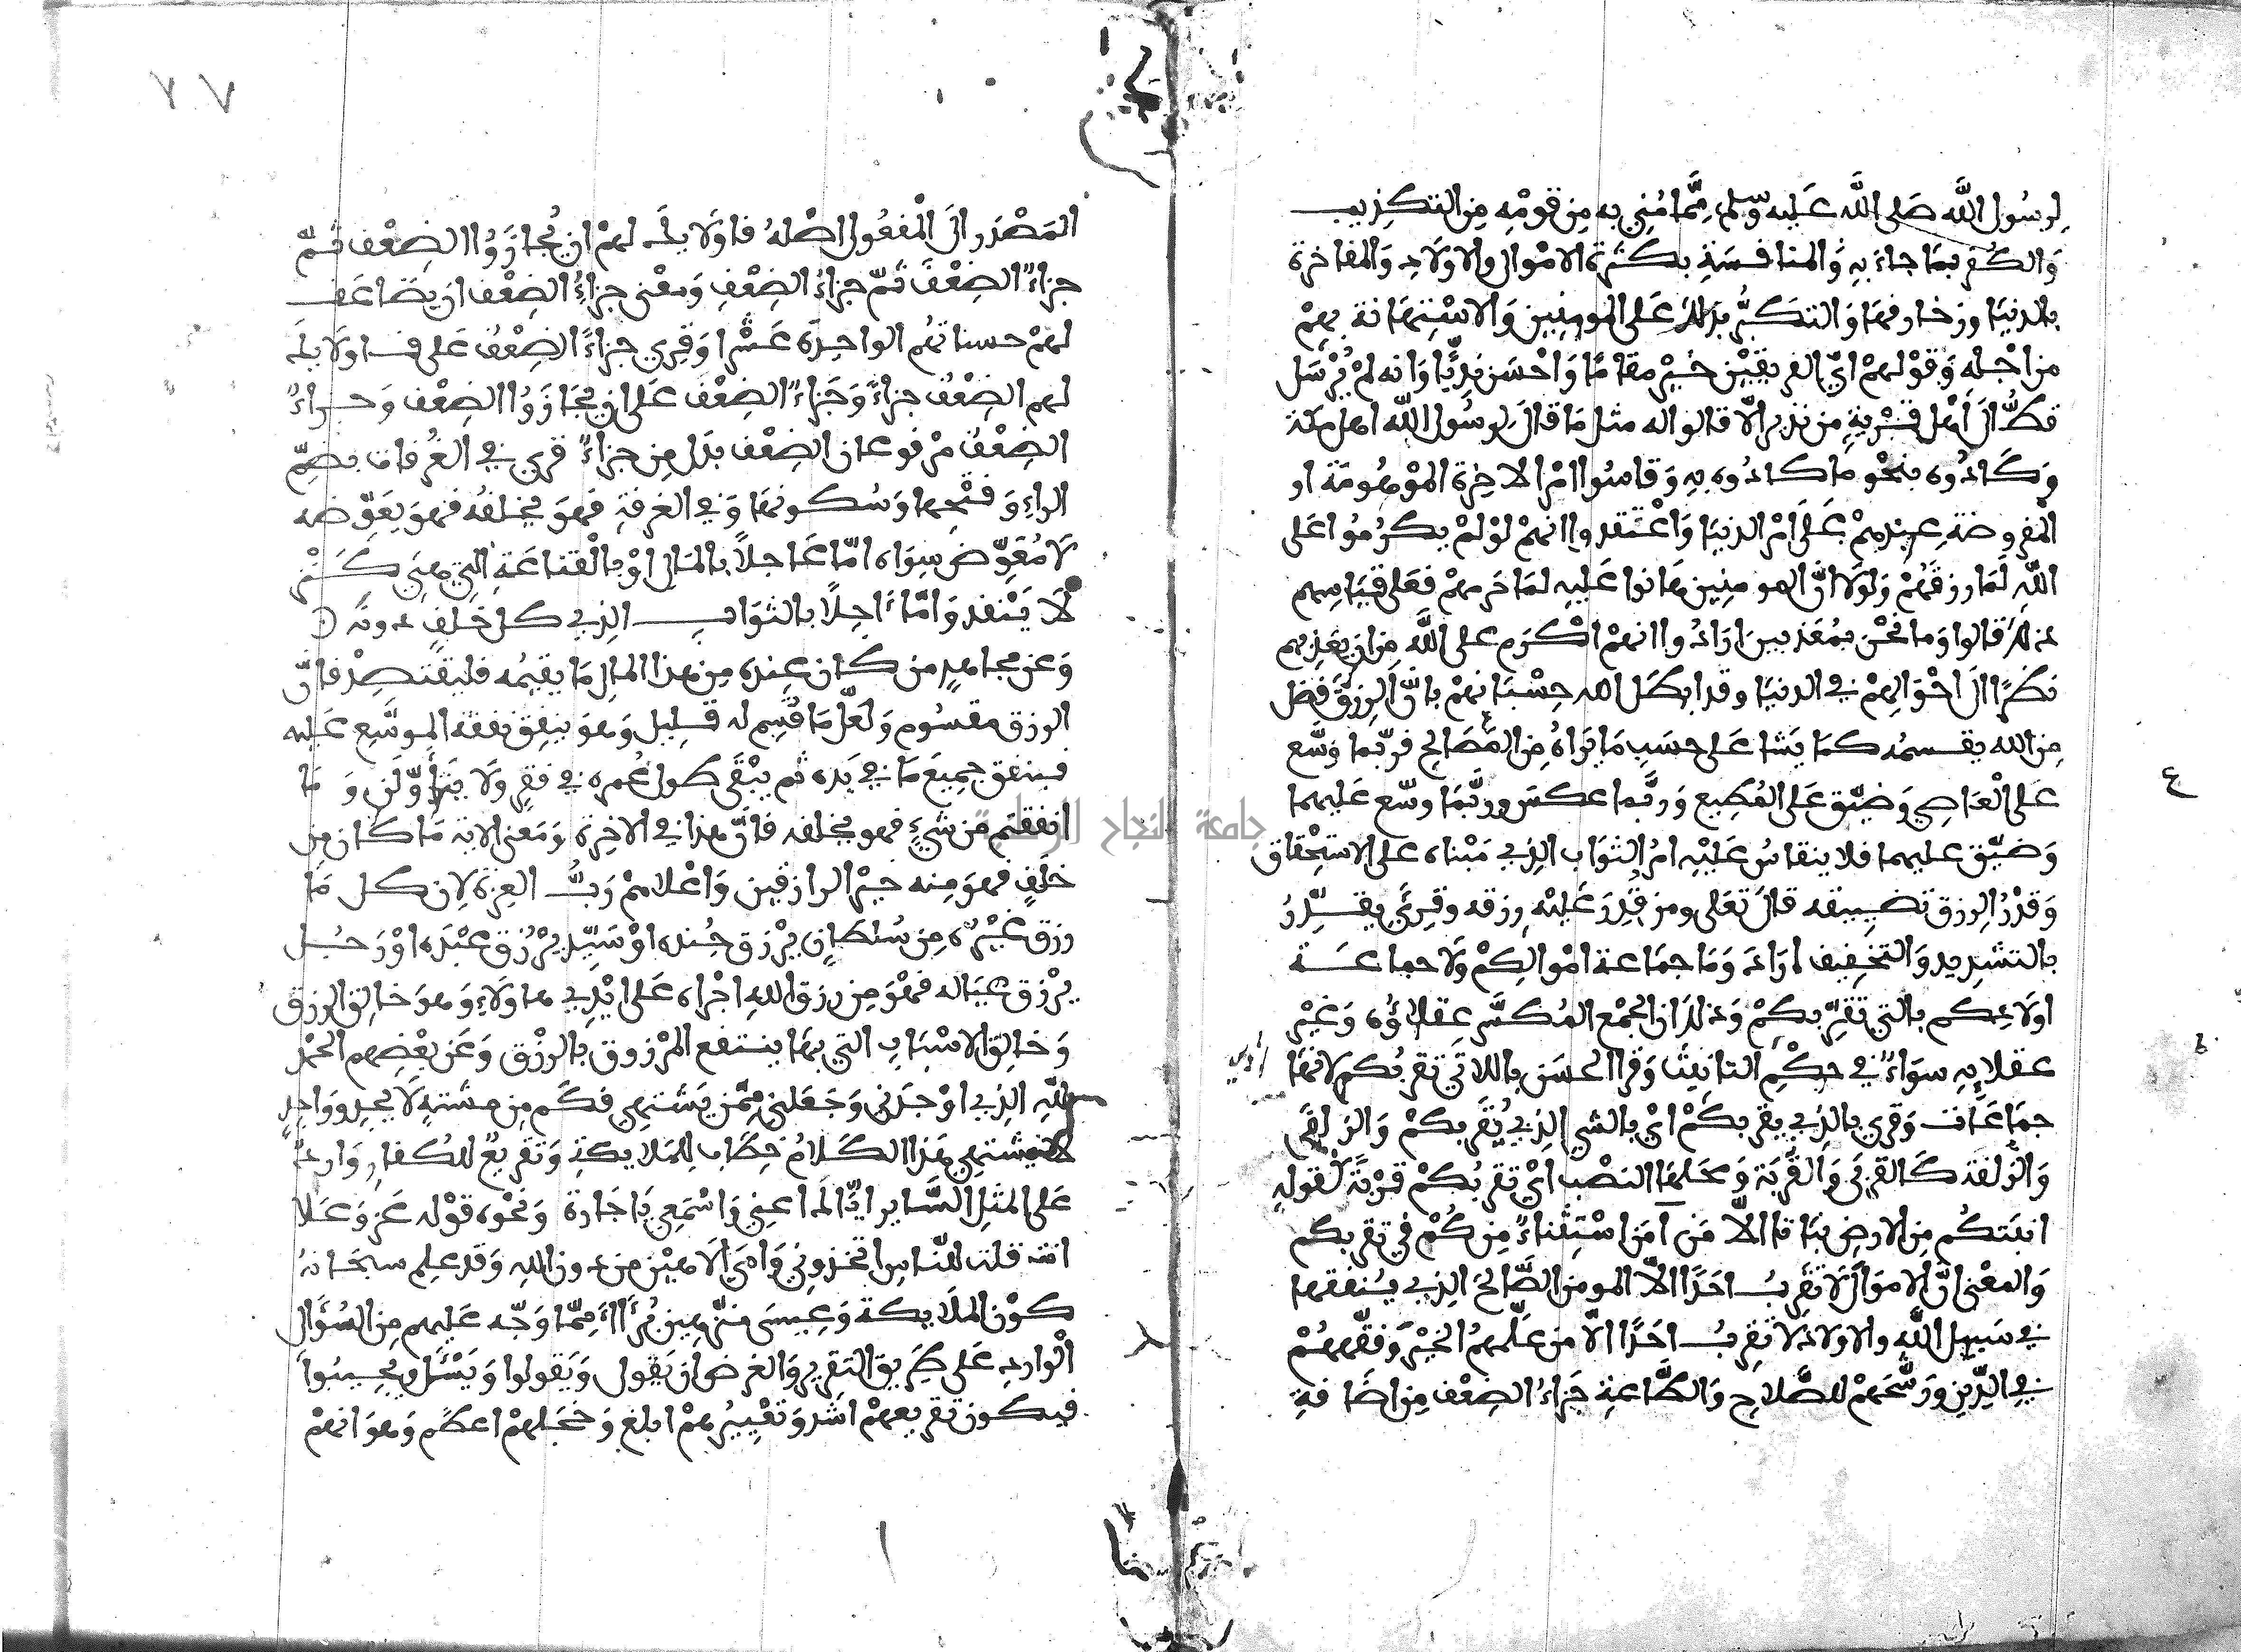 لرسول الله صلى الله عليه وسلم مما مُني به من قومه من التكذيب
والكفر بما جاء به والمنافسة بكثرة الاموال والاولاد والمفاخرة
بالدنيا وزخارفها والتكبّر بذلك على المومنين والاستهانة بهم
من اجله وقولهم ايّ الفريقين خير مقاما واحسن نديّا وانه لم يُرسل
قطّ الى اهل قرية من نذير الّا قالوا له مثل ما قال لرسول الله اهل مكة
وكادوه بنحو ما كادوه به وقاسوا امر الاخرة الموهومة او
المفروضة عندهم على امر الدنيا واعتقدوا انهم لو لم يكرموا على
الله لما رزقهم ولولا انّ المومنين هانوا عليه لما حرمهم فعلى قياسهم
ذلك قالوا وما نحن بمعذبين ارادوا انهم اكرم على الله من ان يعذبهم
نظرًا الى احوالهم في الدنيا وقد ابطل الله حسبانهم بانّ الرزق فضل
من الله يقسمه كما يشا على حسب ما يراه من المصالح فربّما وسّع
على العاصي وضيّق على المطيع وربّما عكس وربّما وسّع عليهما
وضيّق عليهما فلا ينقاس عليه امر الثواب الذي مبناه على الاستحقاق
وقدْرُ الرزق تضييقه قال تعلى ومن قُدِر عليه رزقه وقرئ يقدّر
بالتشديد والتخفيف اراد وما جماعة اموالكم ولا جماعة
اولادكم بالتي تقرّبكم وذلك ان الجمع المكسّر عقلاؤه وغير
عقلايه سواء في حكم التانيث وقرا الحسن باللاتي تقربكم لانها
جماعات وقرئ بالذي يقربكم اي بالشي الذي يُقربكم والزلفى
والزلفة كالقربى والقربة ومحلها النصب اي تقربكم قربة كقوله
انبتكم من الارض نباتا الّا من امن استثناء من كُم في تقربكم
والمعنى انّ الاموال لا تقرب احدًا الّا المومن الصالح الذي ينفقها
في سبيل الله والاولاد لا تقرب احدًا الّا من علّمهم الخير وفقّههم
في الدين ورشّحهم للصّلاح والطّاعة جزاء الضعف من اضافة
٧٧
المصدر الى المفعول اصله فاولايك لهم ان يُجازوا الضعف ثمّ
جزاءٌ الضعفَ ثمّ جزاءُ الضعفِ ومعنى جزاء الضعف ان يضاعف
لهم حسناتهم الواحدة عشرا وقرئ جزاءً الضعف على فاولايك
لهم الضعف جزاءً وجزاءٌ الضعف على ان يجازوا الضعف وجزاءٌ
الضعف مرفوعان الضعف بدل من جزاء قرئ في الغرفات بضمّ
الراء وفتحها وسكونها وفي الغرفة فهو يخلفه فهو يعوّضه
لا مُعَوِّض سواه امّا عاجلاً بالمال او بالقناعة التي هي كنز
لا ينفد وامّا اجلًا بالثواب الذي كل خلف دونه
وعن مجاهد من كان عنده من هذا المال ما يقيمه فليقتصد فانّ
الرزق مقسوم ولعلّ ما قُسم له قليل وهو ينفق نفقة الموسّع عليه
فينفق جميع ما في يده ثم يبقى طول عمره في فقر ولا يتاوّلن وما
انفقتم من شيء فهو يخلفه فانّ هذا في الاخرة ومعنى الاية ما كان من
خلَف فهو منه خير الرازقين واعلاهم ربّ العزة لان كل ما
رزق غيره من سلطان يرزق جنده او سيّد يرزق عبده او رجل
يرزق عياله فهو من رزق الله اجراه على ايدي هاولاء وهو خالق الرزق
وخالق الاسباب التي بها ينتفع المرزوق بالرزق وعن بعضهم الحمد
لله الذي اوجدني وجعلني ممّن يشتهي فكم من مشته لا يجد وواجد
لا يشتهي هذا الكلام خطاب للملايكة وتقريع للكفار وارد
على المثل الساير ايّاك اعني واسمعي يا جارة ونحوه قوله عز وعلا
انت قلت للناس اتخذوني وامي الاهين من دون الله وقد علم سبحانه
كون الملايكة وعيسى منزّهين بُرءاء ممّا وجّه عليهم من السؤال
الوارد على طريق التقرير والغرض ان يقول ويقولوا ويسئل ويجيبوا
فيكون تقريعهم اشد وتعييرهم ابلغ وخجلهم اعظم وهو انهم
جامعة النجاح الوطنية